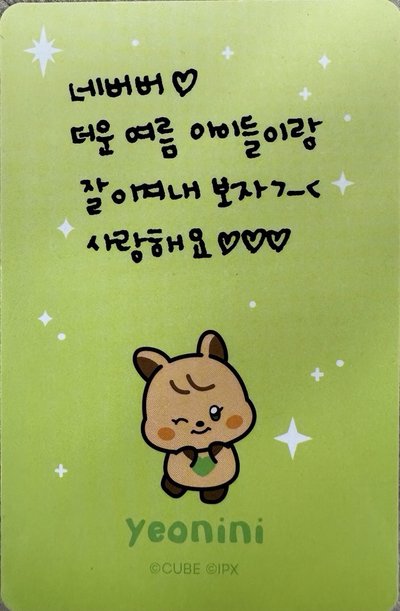 네버버♡
더운 여름 아이들이랑
잘 이겨내 보자ㄱ-<
사랑해요♡♡♡
yeonini
©CUBE ©IPX